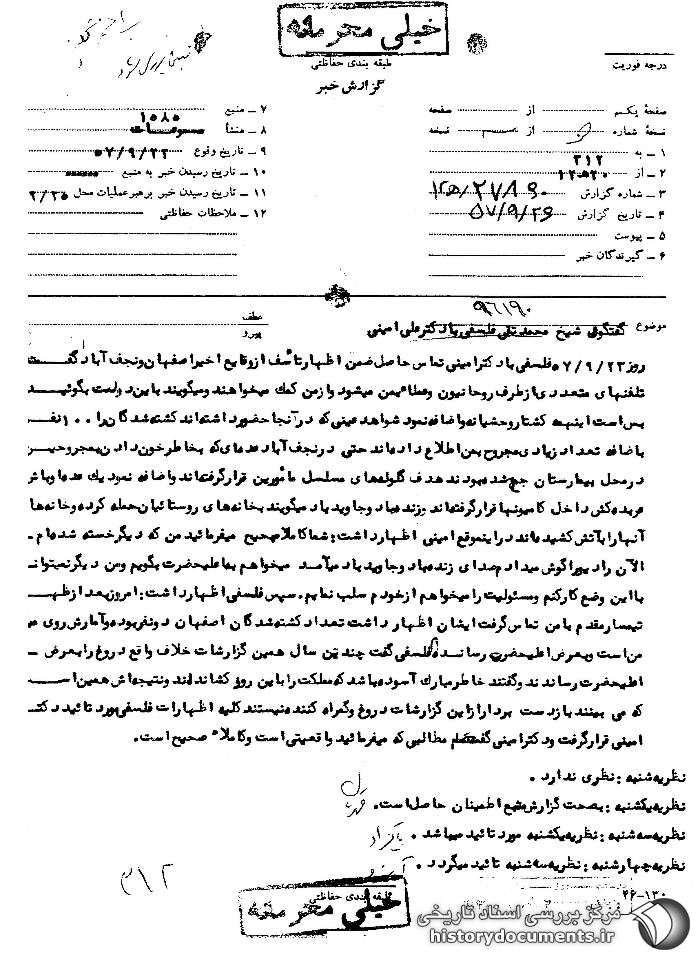 خیلی محرمانه
طبقه بندی حفاظتی
گزارش خبر
درجه فوریت
صفحه یکم از صفحه
نسخه شماره از نسخه
۱ ـ به ۳۱۲
۲ ـ از
۳ ـ شماره گزارش
۴ ـ تاریخ گزارش ۵۷/۹/۲۶
۵ ـ پیوست
۶ ـ گیرندگان خبر
۷ ـ منبع ۱۰۸۵
۸ ـ منشأ مسموعات
۹ ـ تاریخ وقوع ۵۷/۹/۲۳
۱۰ ـ تاریخ رسیدن خبر به منبع
۱۱ ـ تاریخ رسیدن خبر برهبر عملیات محل
۱۲ ـ ملاحظات حفاظتی
۹۶۱۹۰
موضوع گفتگوی شیخ محمدتقی فلسفی با دکتر علی امینی
عطف
پیرو
روز ۵۷/۹/۲۳ فلسفی با دکتر امینی تماس حاصل ضمن اظهار تأسف از وقایع اخیر اصفهان و نجف آباد گفت
تلفنهای متعددی از طرف روحانیون و مقامات بمن میشود و از من کمک میخواهند و میگویند باین دولت بگوئید
بس است اینهمه کشتار وحشیانه و اضافه نمود شواهد عینی که در آنجا حضور داشته‌اند کشته شدگان را ۱۰۰ نفر
باضافه تعداد زیادی مجروح بمن اطلاع داده‌اند حتی در نجف آباد عده‌ای که بخاطر خون دادن بمجروحین
در محل بیمارستان جمع شده بودند هدف گلوله‌های مسلسل مأمورین قرار گرفته‌اند و اضافه نمود یک عده اوباش
عربده کش داخل کامیونها قرار گرفته‌اند و زنده باد و جاوید باد میگویند بخانه‌های روستائیان حمله کرده و خانه‌ها
آنها را بآتش کشیده‌اند در اینموقع امینی اظهار داشت: شما کاملا صحیح میفرمائید من که دیگر خسته شده‌ام ـ
الآن رادیو را گوش میدادم صدای زنده باد و جاوید باد میآمد میخواهم به اعلیحضرت بگویم ومن دیگر نمیتوانم
با این وضع کار کنم و مسئولیت را میخواهم از خودم سلب نمایم. سپس فلسفی اظهار داشت: امروز بعد از ظهر
تیمسار مقدم با من تماس گرفت ایشان اظهار داشت تعداد کشته شدگان اصفهان دو نفر بوده و آمارش روی میز
من است و بعرض اعلیحضرت رسانده‌ام فلسفی گفت چندین سال همین گزارشات خلاف واقع دروغ را بعرض ـ
اعلیحضرت رساندند و گفتند خاطر مبارک آسوده باشد که مملکت را باین روز کشاندند و نتیجه‌اش همین است
که می بینند باز دست بردار از این گزارشات دروغ و گمراه کننده نیستند کلیه اظهارات فلسفی مورد تائید دکتر
امینی قرار گرفت و دکتر امینی گفت تمام مطالبی که میفرمائید واقعیتی است و کاملاً صحیح است.
نظریه شنبه : نظری ندارد .
نظریه یکشنبه : بصحت گزارش منبع اطمینان حاصل است.
نظریه سه‌شنبه : نظریه یکشنبه مورد تائید میباشد .
نظریه چهارشنبه : نظریه سه‌شنبه تائید میگردد .
۳۱۲
طبقه بندی حفاظتی
خیلی محرمانه
۴۶-۱۳۰
مرکز بررسی اسناد تاریخی
historydocuments.ir